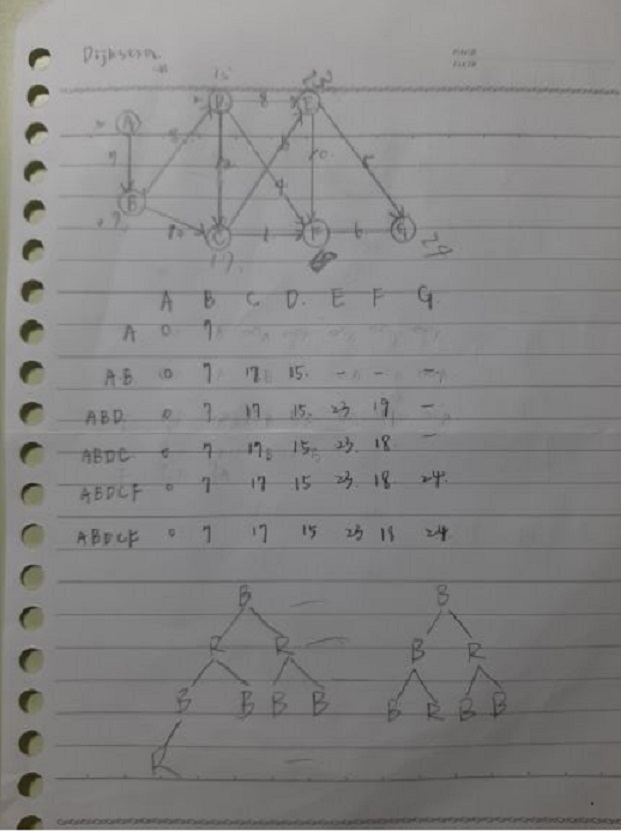 Dijkstra
15
D 8 E
A
7 8 6 10 5
4
B
10 C 1 F 6 G
17 24
A B C D. E F G
A 0 7
AB 0 7 17 15. - - -
ABD 0 7 17 15 23 19 -
ABDC 0 7 17 15 23 18 -
ABDCF 0 7 17 15 23 18 24
ABDCF 0 7 17 15 23 18 24
B B
R R B R
B B B B B R B B
R